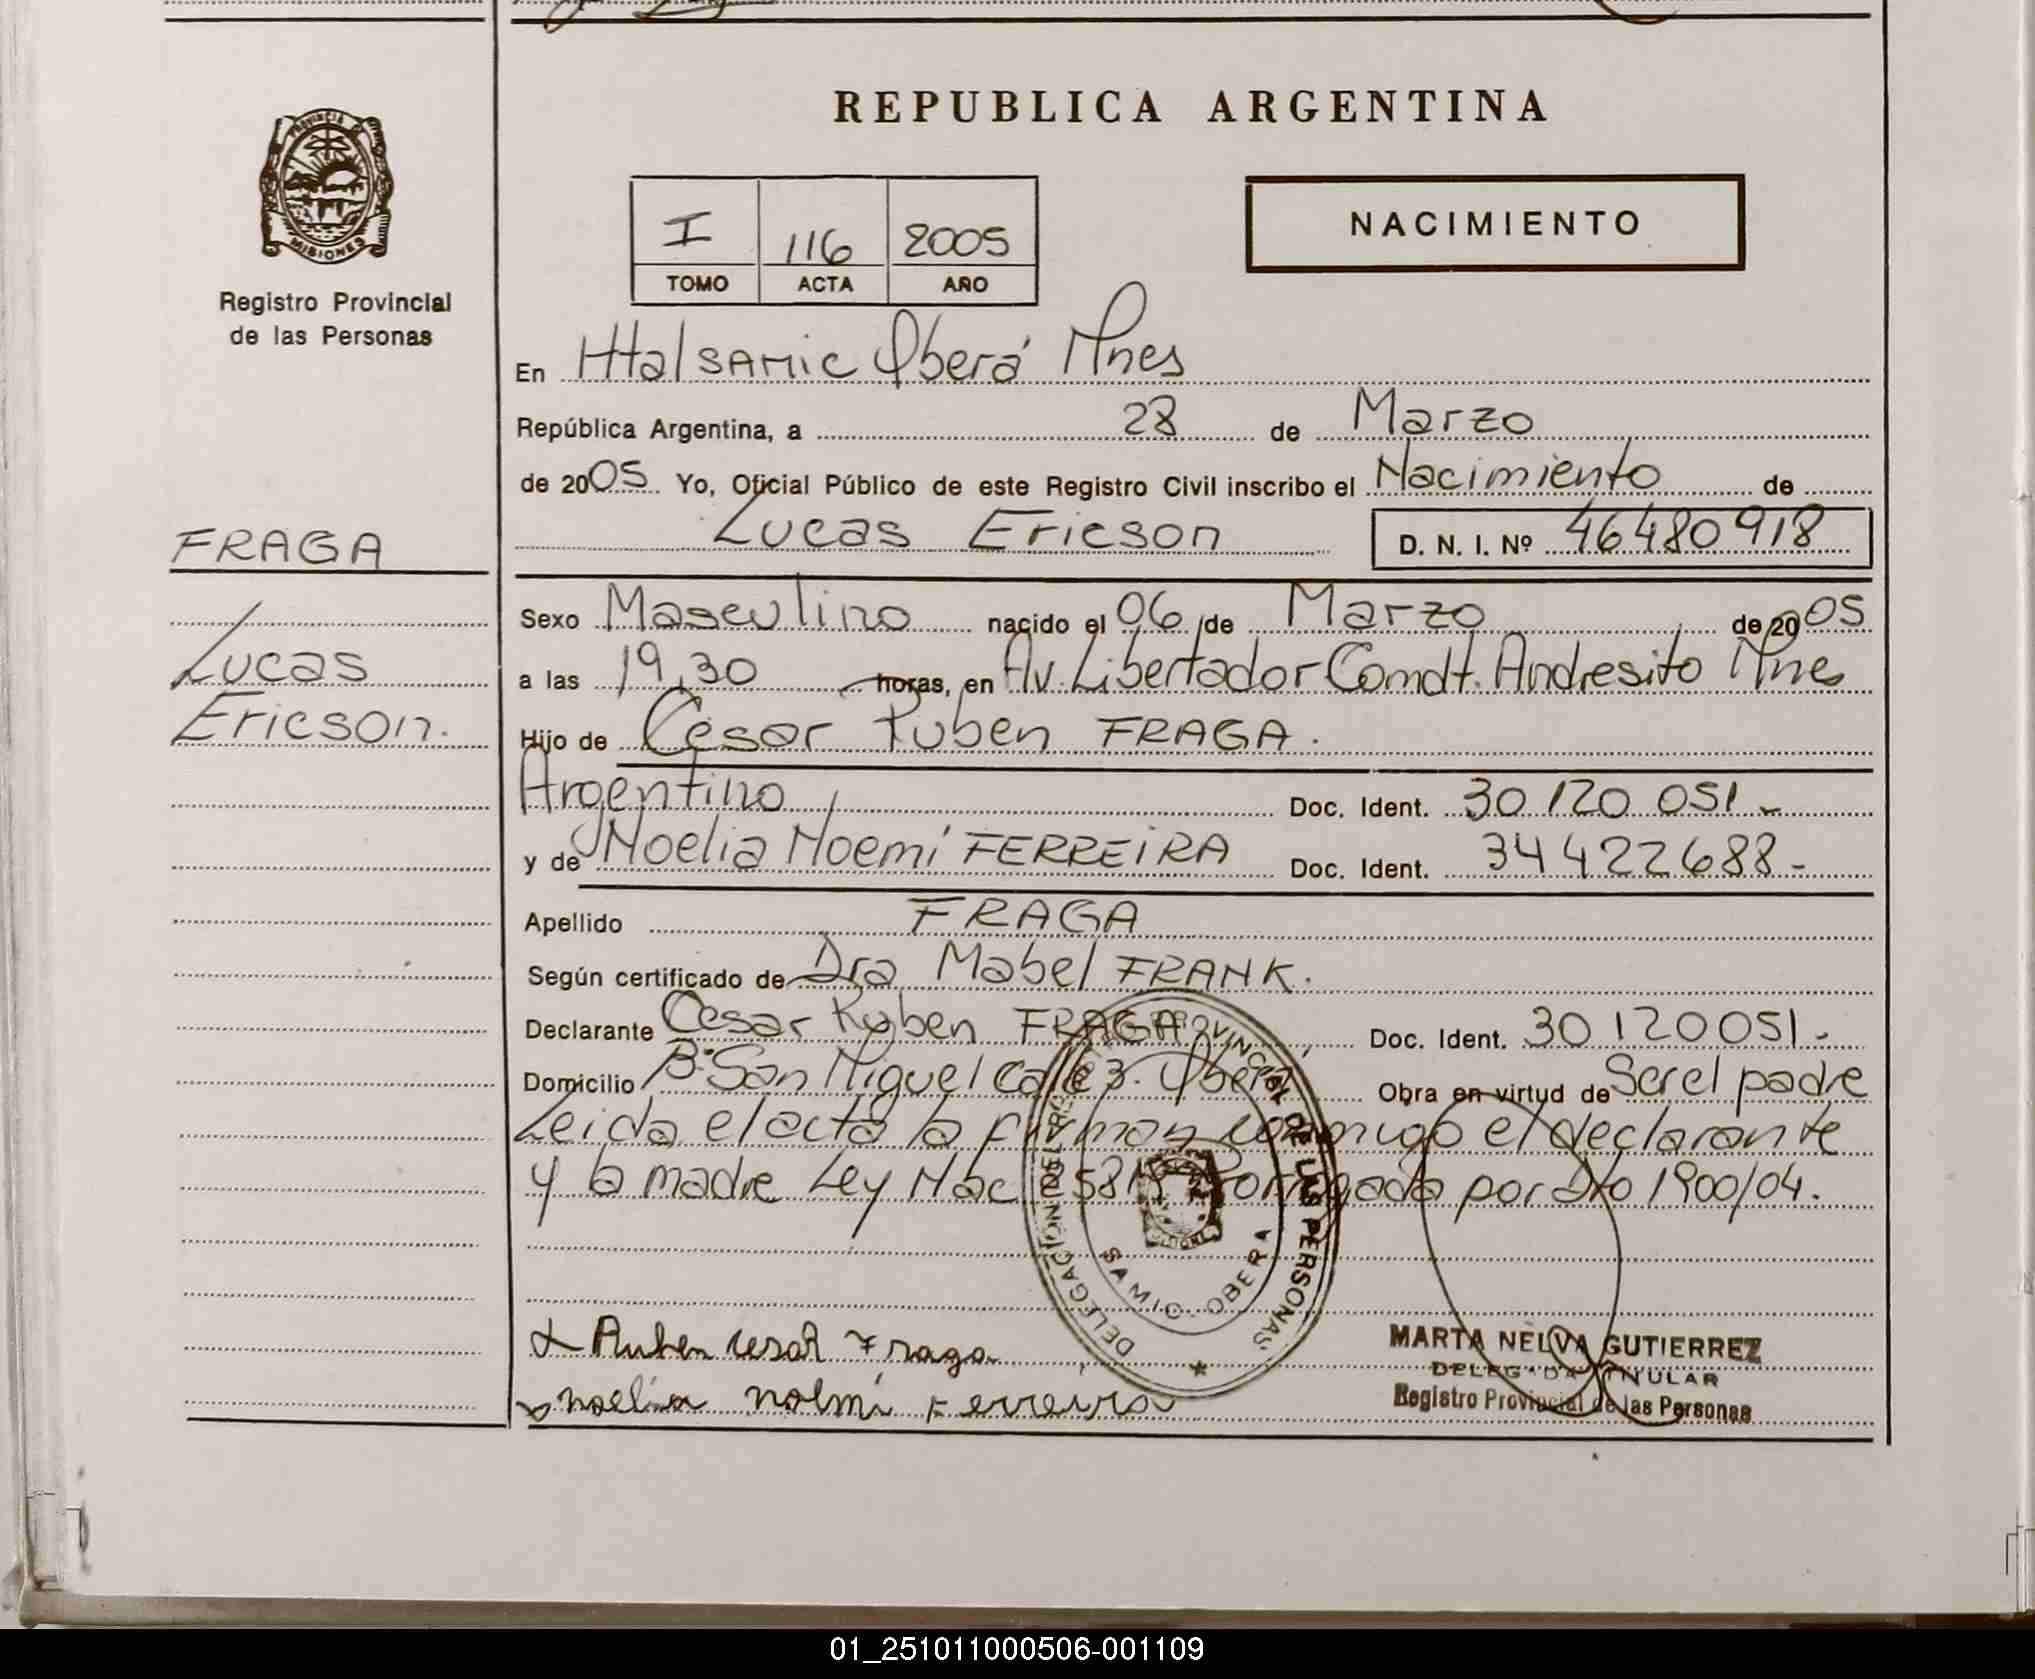 REPUBLICA ARGENTINA
PROVINCIA DE
MISIONES
Registro Provincial
de las Personas
I 116 2005
TOMO ACTA AÑO
NACIMIENTO
En Htal SAMIC Oberá Mnes
República Argentina, a 28 de Marzo
de 2005 Yo, Oficial Público de este Registro Civil inscribo el Nacimiento de
Lucas Ericson D. N. I. Nº 46480918
FRAGA
Lucas
Ericson.
Sexo Masculino nacido el 06 de Marzo de 2005
a las 19,30 horas, en Av. Libertador Comdt. Andresito Mnes
Hijo de Cesar Ruben FRAGA.
Argentino Doc. Ident. 30 120 051-
y de Noelia Noemí FERREIRA Doc. Ident. 34422688-
Apellido FRAGA
Según certificado de Dra Mabel FRANK.
Declarante Cesar Ruben FRAGA Doc. Ident. 30 120051-
Domicilio Bº San Miguel calle 3. Oberá Obra en virtud de Ser el padre
Leida el acta la firman conmigo el declarante
y la madre Ley Nac 25819 Prorrogada por Dto 1900/04.
DELEGACION DEL REGISTRO PROVINCIAL DE LAS PERSONAS
SAMIC-OBERA
Ruben Cesar Fraga
Noelia Noemí Ferreira
MARTA NELVA GUTIERREZ
DELEGADA TITULAR
Registro Provincial de las Personas
01_251011000506-001109